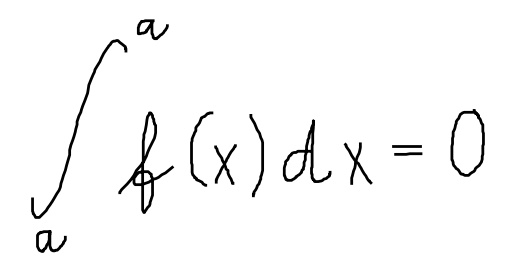 ∫ₐᵃ f(x)dx = 0